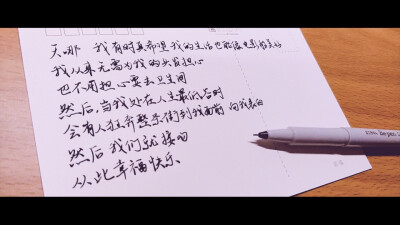 天哪 我有时真希望我的生活也能像电影般美好
我从来无需为我的头发担心
也不用担心要去卫生间
然后,当我处在人生最低谷时
会有人狂奔整条街到我面前 向我表白
然后 我们就接吻
从此幸福快乐